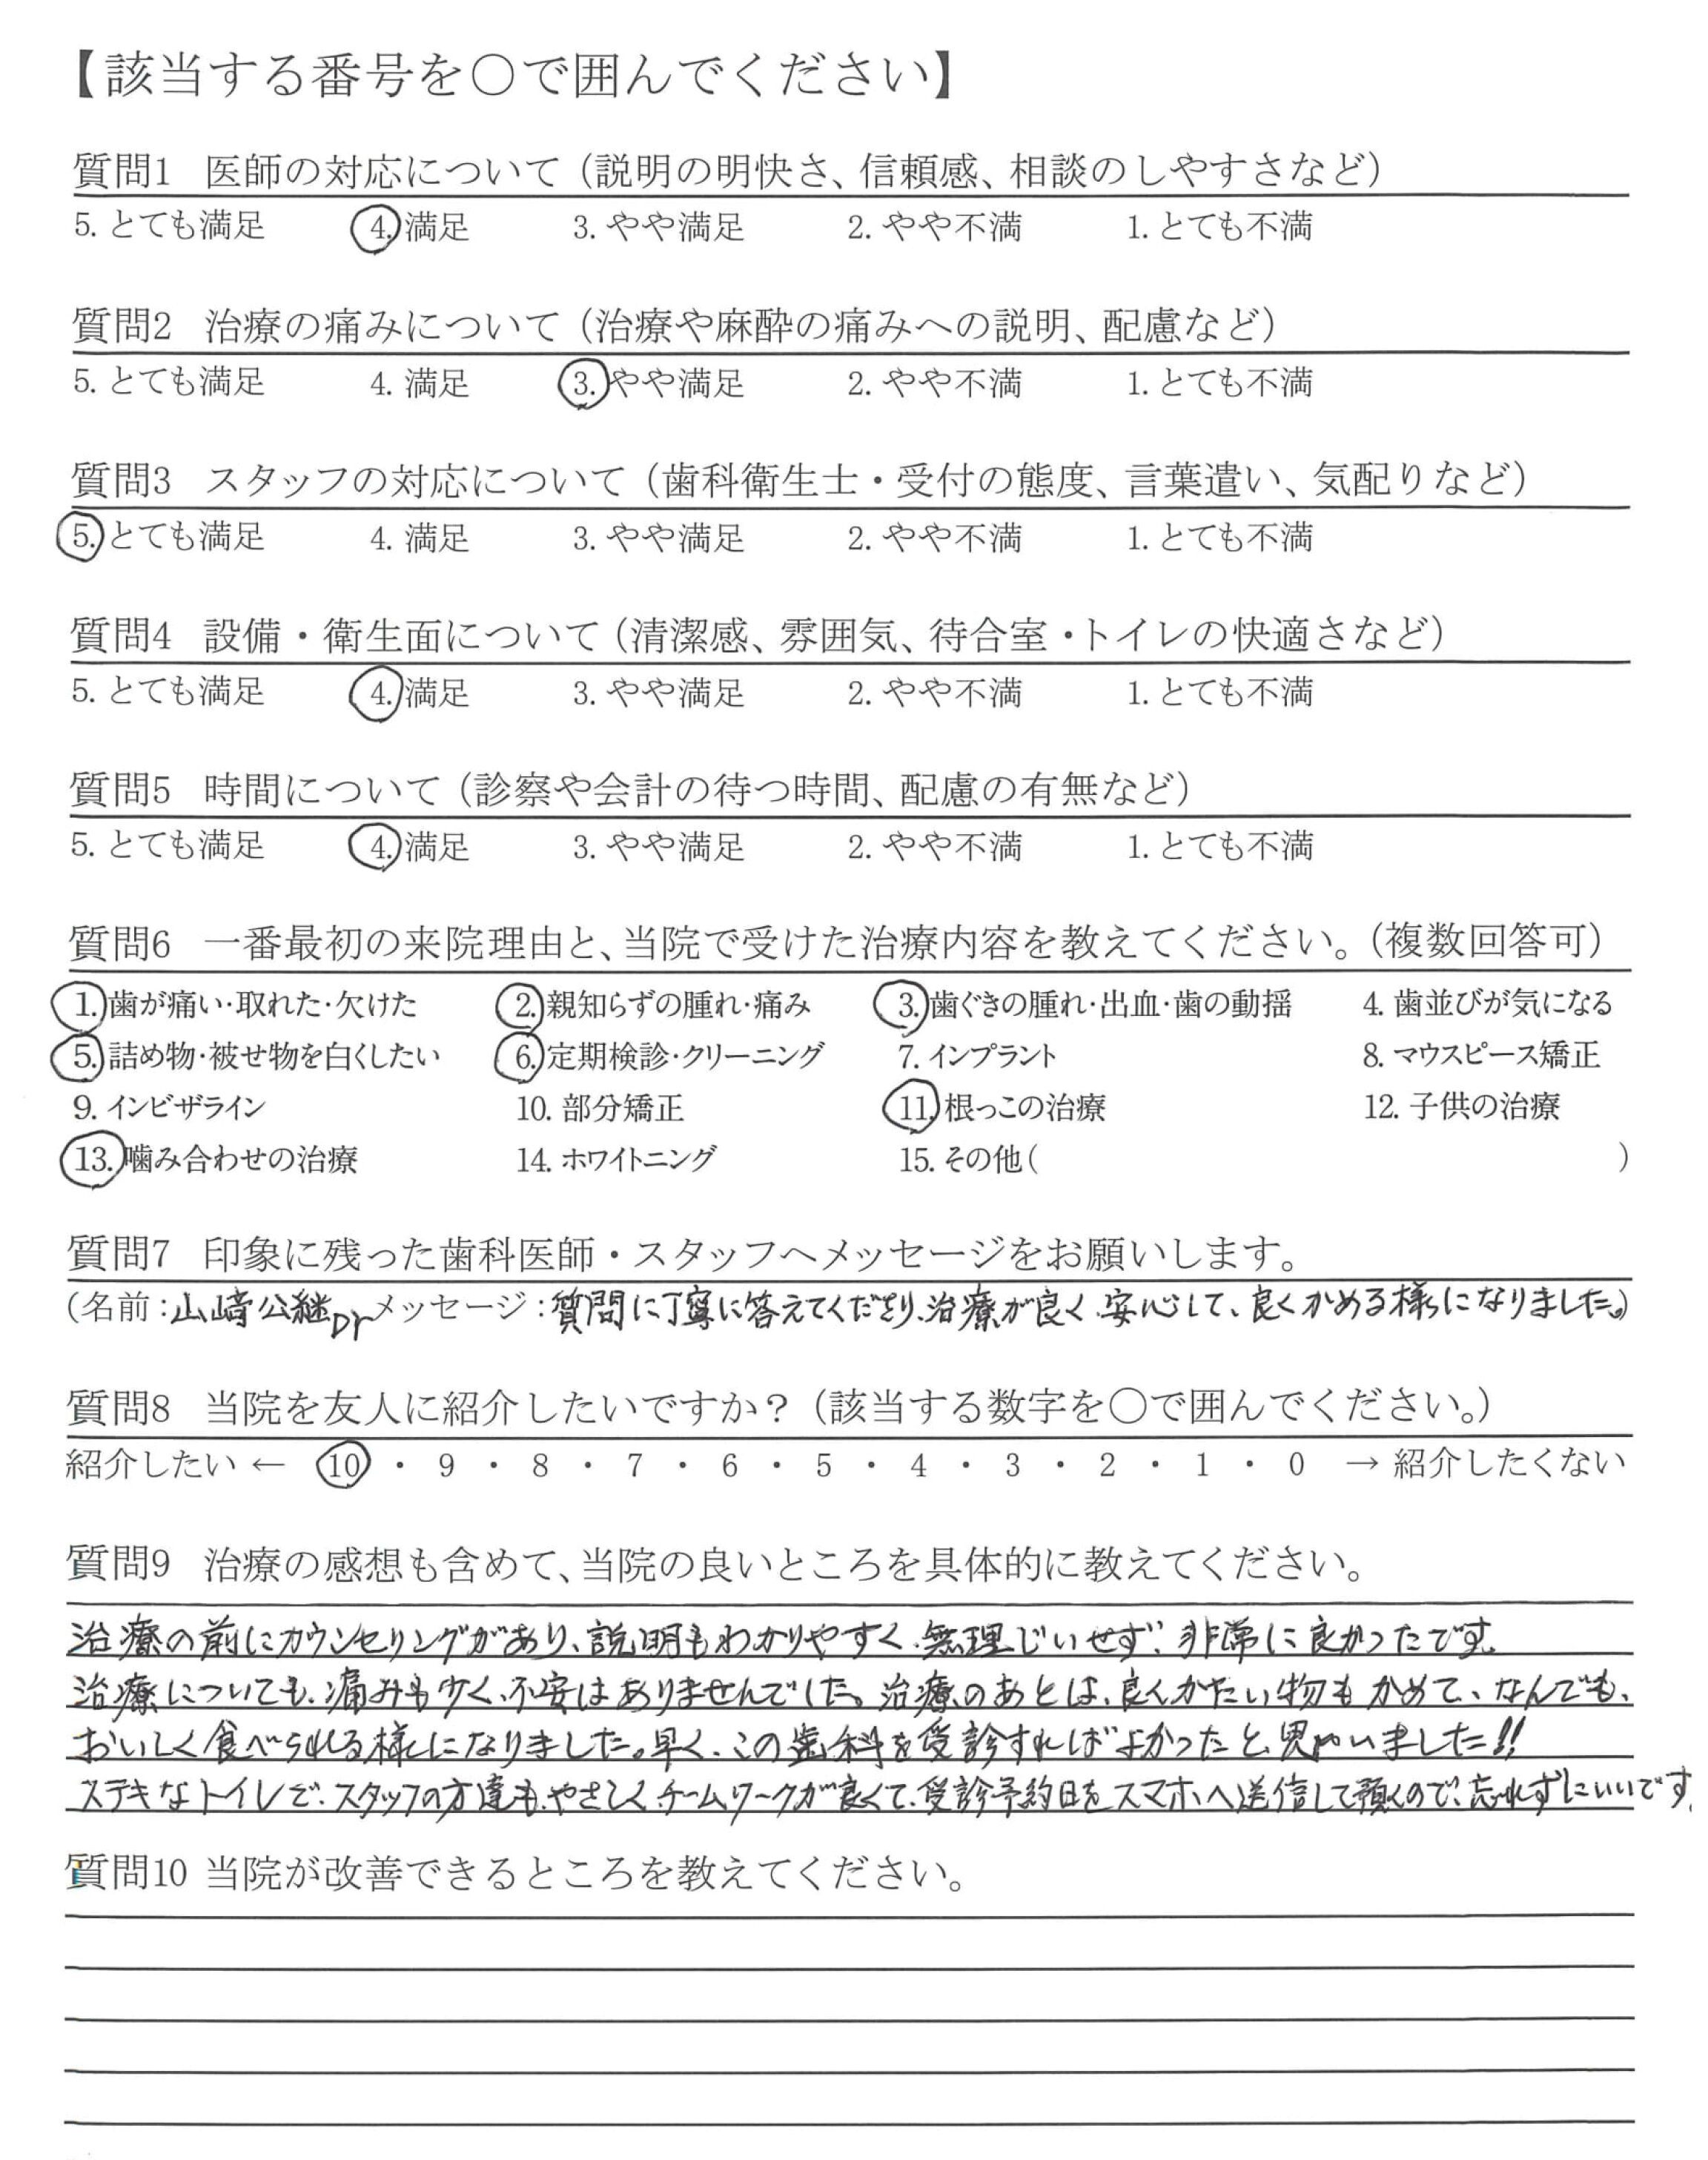 【該当する番号を〇で囲んでください】
質問1 医師の対応について（説明の明快さ、信頼感、相談のしやすさなど）
5. とても満足 4. 満足 3. やや満足 2. やや不満 1. とても不満
質問2 治療の痛みについて（治療や麻酔の痛みへの説明、配慮など）
5. とても満足 4. 満足 3. やや満足 2. やや不満 1. とても不満
質問3 スタッフの対応について（歯科衛生士・受付の態度、言葉遣い、気配りなど）
5. とても満足 4. 満足 3. やや満足 2. やや不満 1. とても不満
質問4 設備・衛生面について（清潔感、雰囲気、待合室・トイレの快適さなど）
5. とても満足 4. 満足 3. やや満足 2. やや不満 1. とても不満
質問5 時間について（診察や会計の待つ時間、配慮の有無など）
5. とても満足 4. 満足 3. やや満足 2. やや不満 1. とても不満
質問6 一番最初の来院理由と、当院で受けた治療内容を教えてください。（複数回答可）
1. 歯が痛い・取れた・欠けた 2. 親知らずの腫れ・痛み 3. 歯ぐきの腫れ・出血・歯の動揺 4. 歯並びが気になる
5. 詰め物・被せ物を白くしたい 6. 定期検診・クリーニング 7. インプラント 8. マウスピース矯正
9. インビザライン 10. 部分矯正 11. 根っこの治療 12. 子供の治療
13. 噛み合わせの治療 14. ホワイトニング 15. その他（ ）
質問7 印象に残った歯科医師・スタッフへメッセージをお願いします。
（名前：山崎公継Dr メッセージ：質問に丁寧に答えてくださり、治療が良く、安心して、良くかめる様になりました。）
質問8 当院を友人に紹介したいですか？（該当する数字を〇で囲んでください。）
紹介したい ← 10 ・ 9 ・ 8 ・ 7 ・ 6 ・ 5 ・ 4 ・ 3 ・ 2 ・ 1 ・ 0 → 紹介したくない
質問9 治療の感想も含めて、当院の良いところを具体的に教えてください。
治療の前にカウンセリングがあり、説明もわかりやすく、無理じいせず、非常に良かったです。
治療についても、痛みも少く、不安はありませんでした。治療のあとは、良くかたい物もかめて、なんでも、
おいしく食べられる様になりました。早く、この歯科を受診すればよかったと思いました!!
ステキなトイレで、スタッフの方達も、やさしく、チームワークが良くて、受診予約日をスマホへ送信して頂くので、忘れずにいいです。
質問10 当院が改善できるところを教えてください。